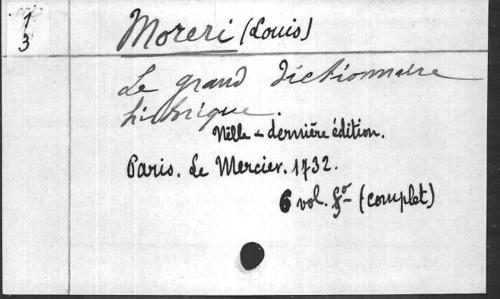 1
3
Moreri (Louis)
Le grand dictionnaire
historique.
Nlle & dernière édition.
Paris. Le Mercier. 1732.
6 vol. fo (complet)